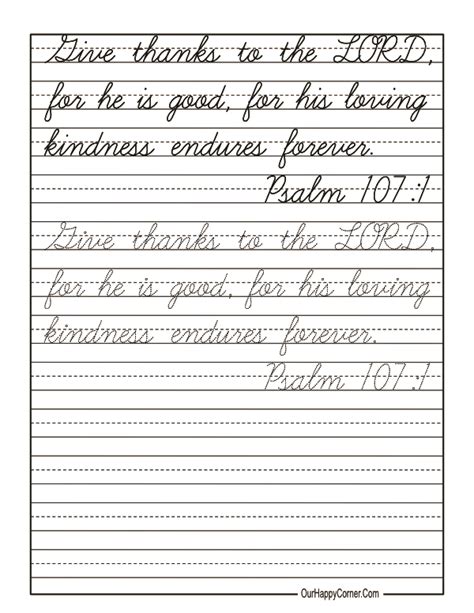 Give thanks to the LORD,
for he is good, for his loving
kindness endures forever.
Psalm 107:1
Give thanks to the LORD,
for he is good, for his loving
kindness endures forever.
Psalm 107:1
OurHappyCorner.Com